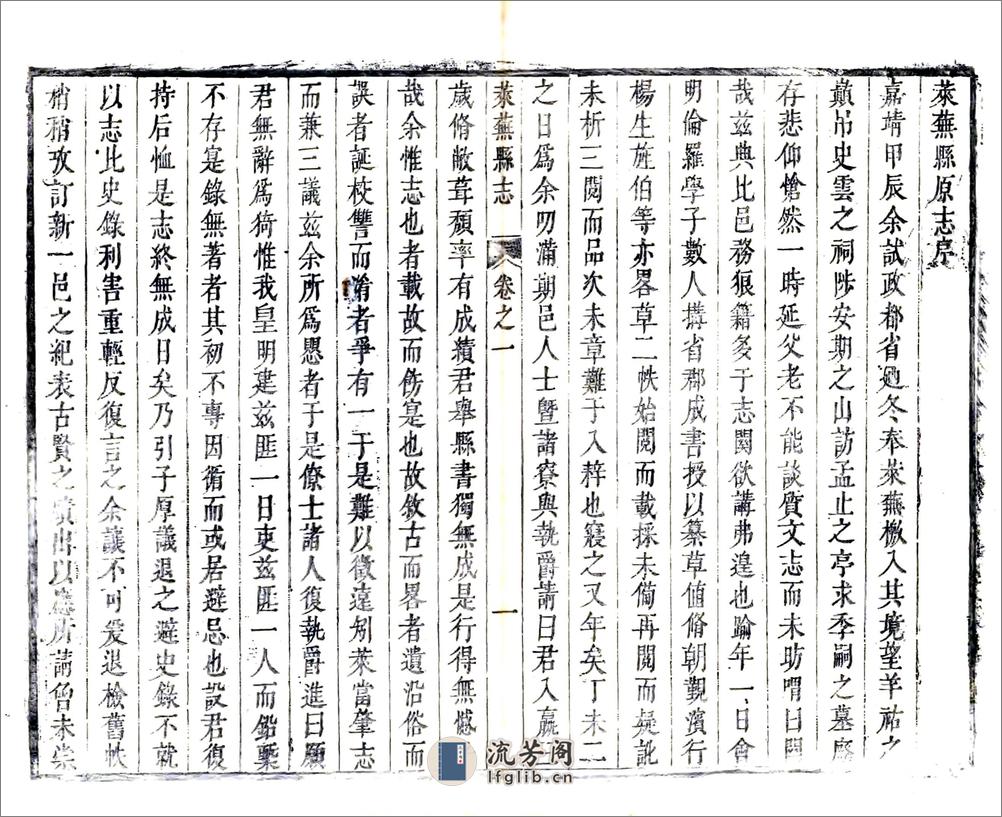 萊蕪縣原志序
嘉靖甲辰余試政都省廼冬奉萊蕪檄入其境望羊祜之
巔吊史雲之祠陟安期之山訪孟止之亭求季嗣之墓廢
存悲仰愴然一時延父老不能談質文志而未昉喟曰闕
哉茲典比邑務狠籍多于志闕欲講弗遑也踰年一日會
明倫羅學子數人搆省郡成書授以纂草値脩朝覲濱行
楊生旌伯等亦畧草二帙始閱而載採未備再閱而疑訛
未析三閱而品次未章難于入梓也寢之又年矣丁未二
之日爲余叨滿期邑人士暨諸寮與執爵請曰君入嬴三
萊蕪縣志 卷之一 一
歲脩敝葺頹率有成績君舉縣書獨無成是行得無憾
哉余惟志也者載故而飭寔也故敘古而畧者遺沿俗而
誤者誕校讐而淆者爭有一于是難以徵遠矧萊當肇志
而兼三議茲余所爲愳者于是僚士諸人復執爵進曰願
君無辭爲猗惟我皇明建茲匪一日吏茲匪一人而鉛槧
不存寔錄無著者其初不專因循而或居避忌也設君復
持后恤是志終無成日矣乃引子厚議退之避史錄不就
以志比史錄利害重輕反復言之余議不可爰退檢舊帙
稍稍攷訂新一邑之紀表古賢之 出以 所請曾未崇